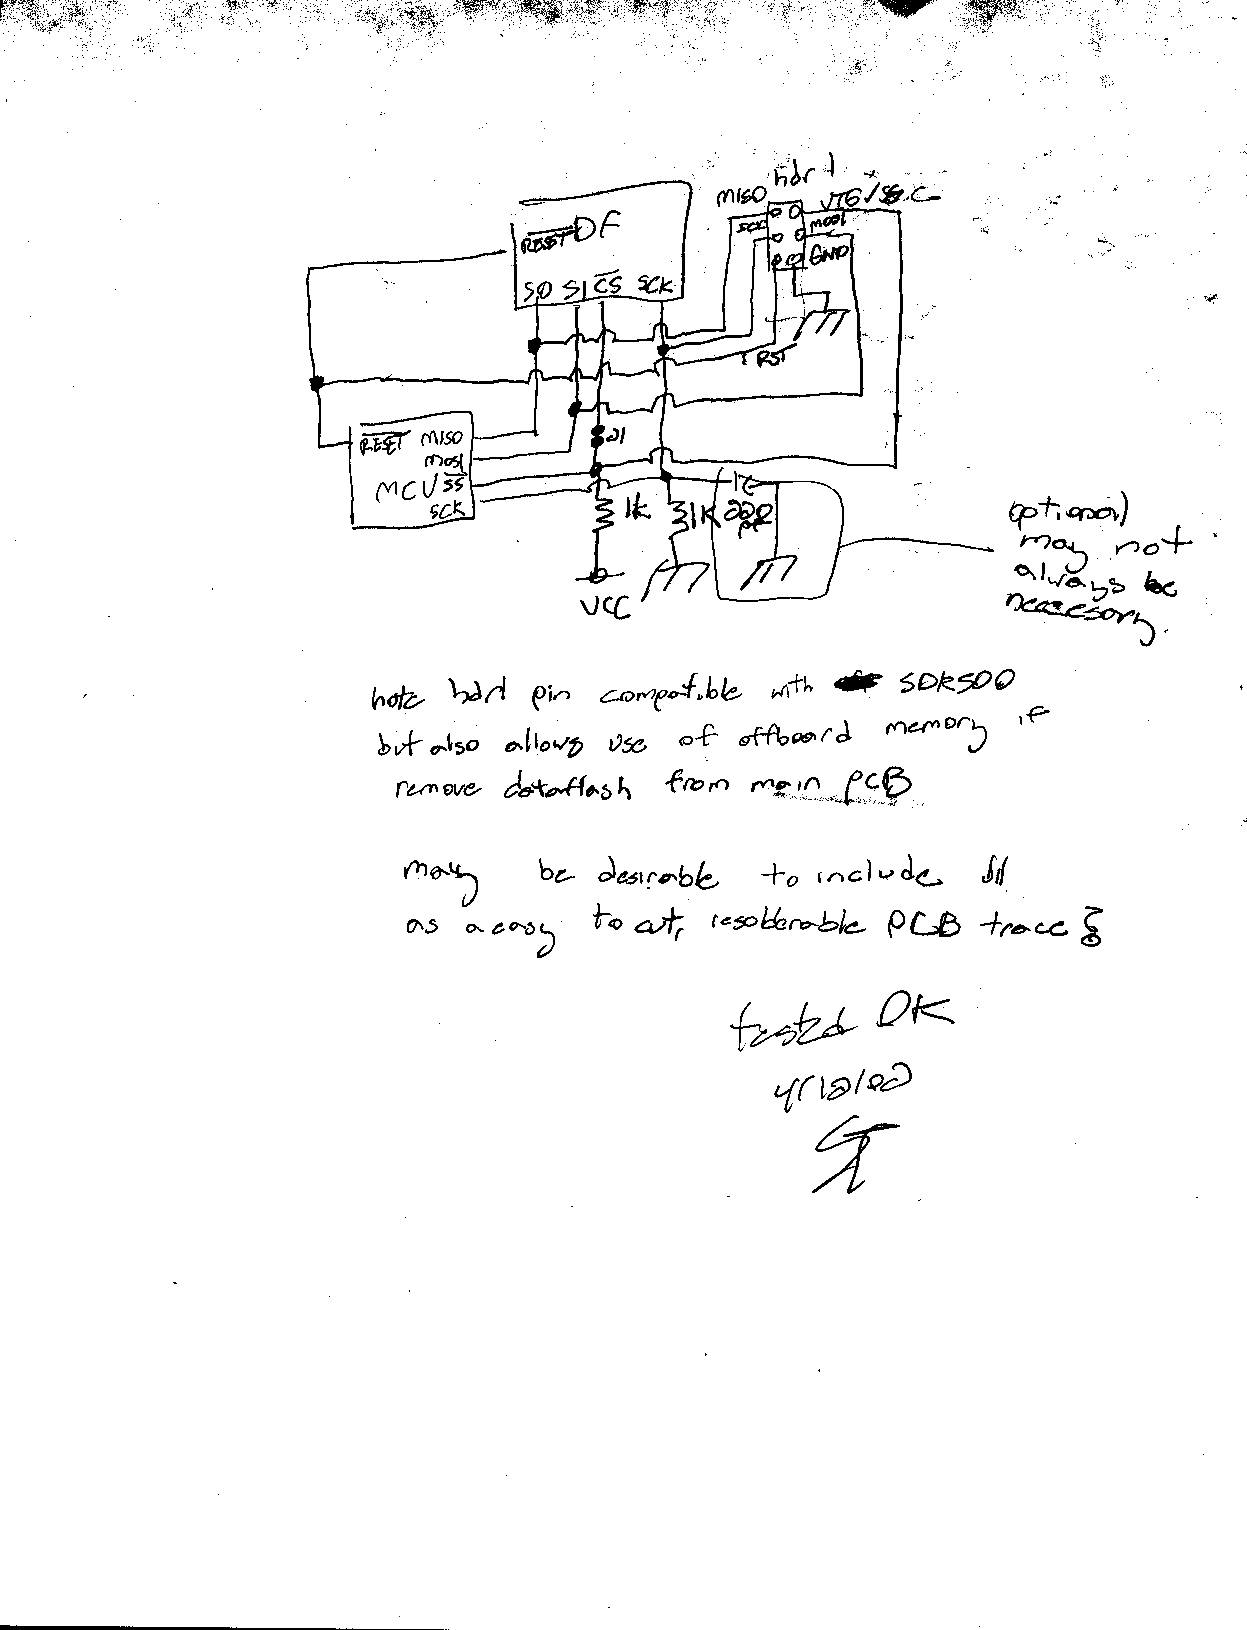 hdr 1
MISO
VTG/SS.C
SCK
MOSI
GND
RST
RESET DF
SO SI CS SCK
J1
RESET MISO
MOSI
MCU SS
SCK
1k
1K
220
PF
VCC
(optional)
may not
always be
necessory.
note hdr1 pin compatible with SDK500
but also allows use of offboard memory if
remove dataflash from main PCB
may be desirable to include J1
as a easy to cut, resolderable PCB trace
tested OK